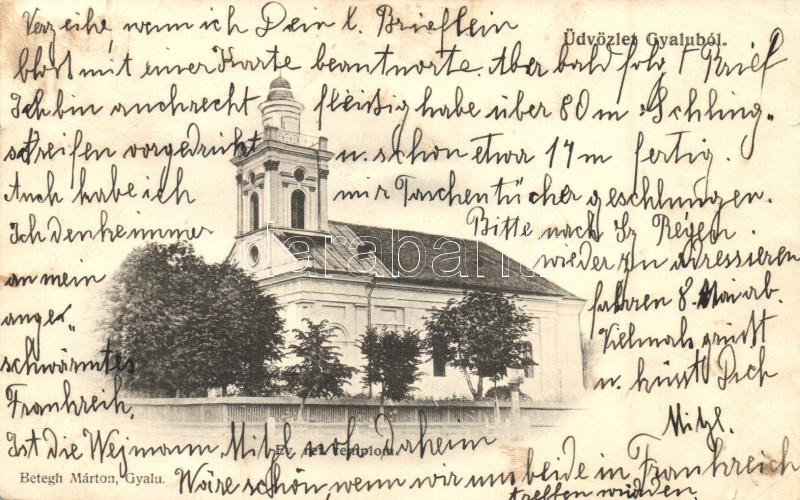 Üdvözlet Gyaluból.
Verzeihe, wenn ich Dein l. Brieflein
blos mit einer Karte beantworte. Aber bald folg 1 Brief
Ich bin auch recht fleißig habe über 80 m „Schling-
streifen vorgedruckt u. schon etwa 17 m fertig.
Auch habe ich mir Taschentücher geschlungen.
Ich denke immer
an mein
ange-
schwärmtes
Frankreich.
Bitte nach Sz Régen
wieder zu adressieren
fahren 8. Mai ab.
Vielmals grüßt
u. küsst Dich
Mitzl.
Ist die Wejmann Mitzl noch daheim
Wäre schön, wenn wir uns beide in Frankreich
treffen würden.
Ev. ref. templom.
Betegh Márton, Gyalu.
darabanth